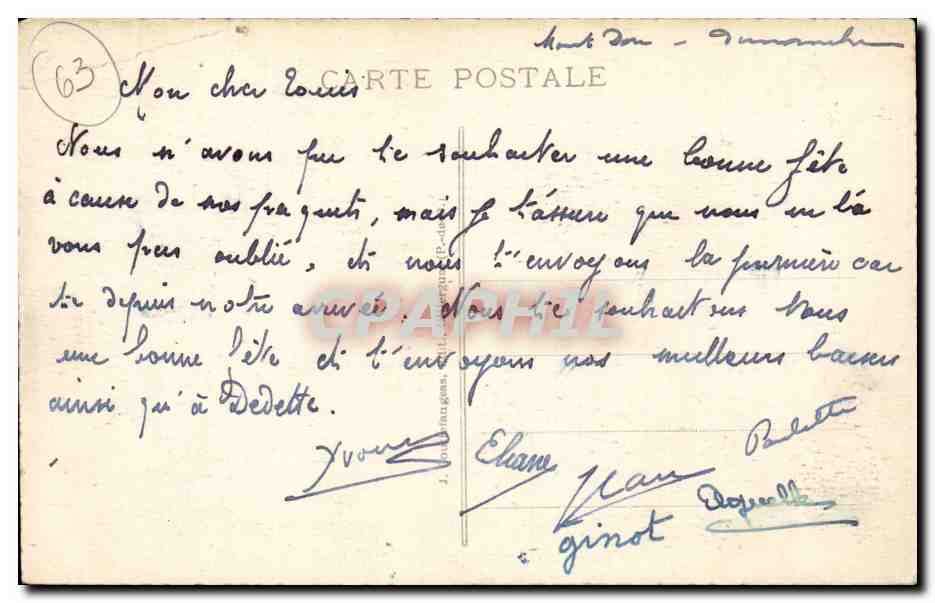 Mont Dore - Dimanche
63
CARTE POSTALE
Mon cher Louis
Nous n'avons pu te souhaiter une bonne fête
à cause de nos paquets, mais je t'assure que nous en l'a
vous pas oublié, et nous t'envoyons la première car
te depuis notre arrivée. Nous te souhaitons tous
une bonne fête et t'envoyons nos meilleurs baisers
ainsi qu'à Dedette.
Yvonne Eliane Jean Paulette
ginot
CPAPHIL